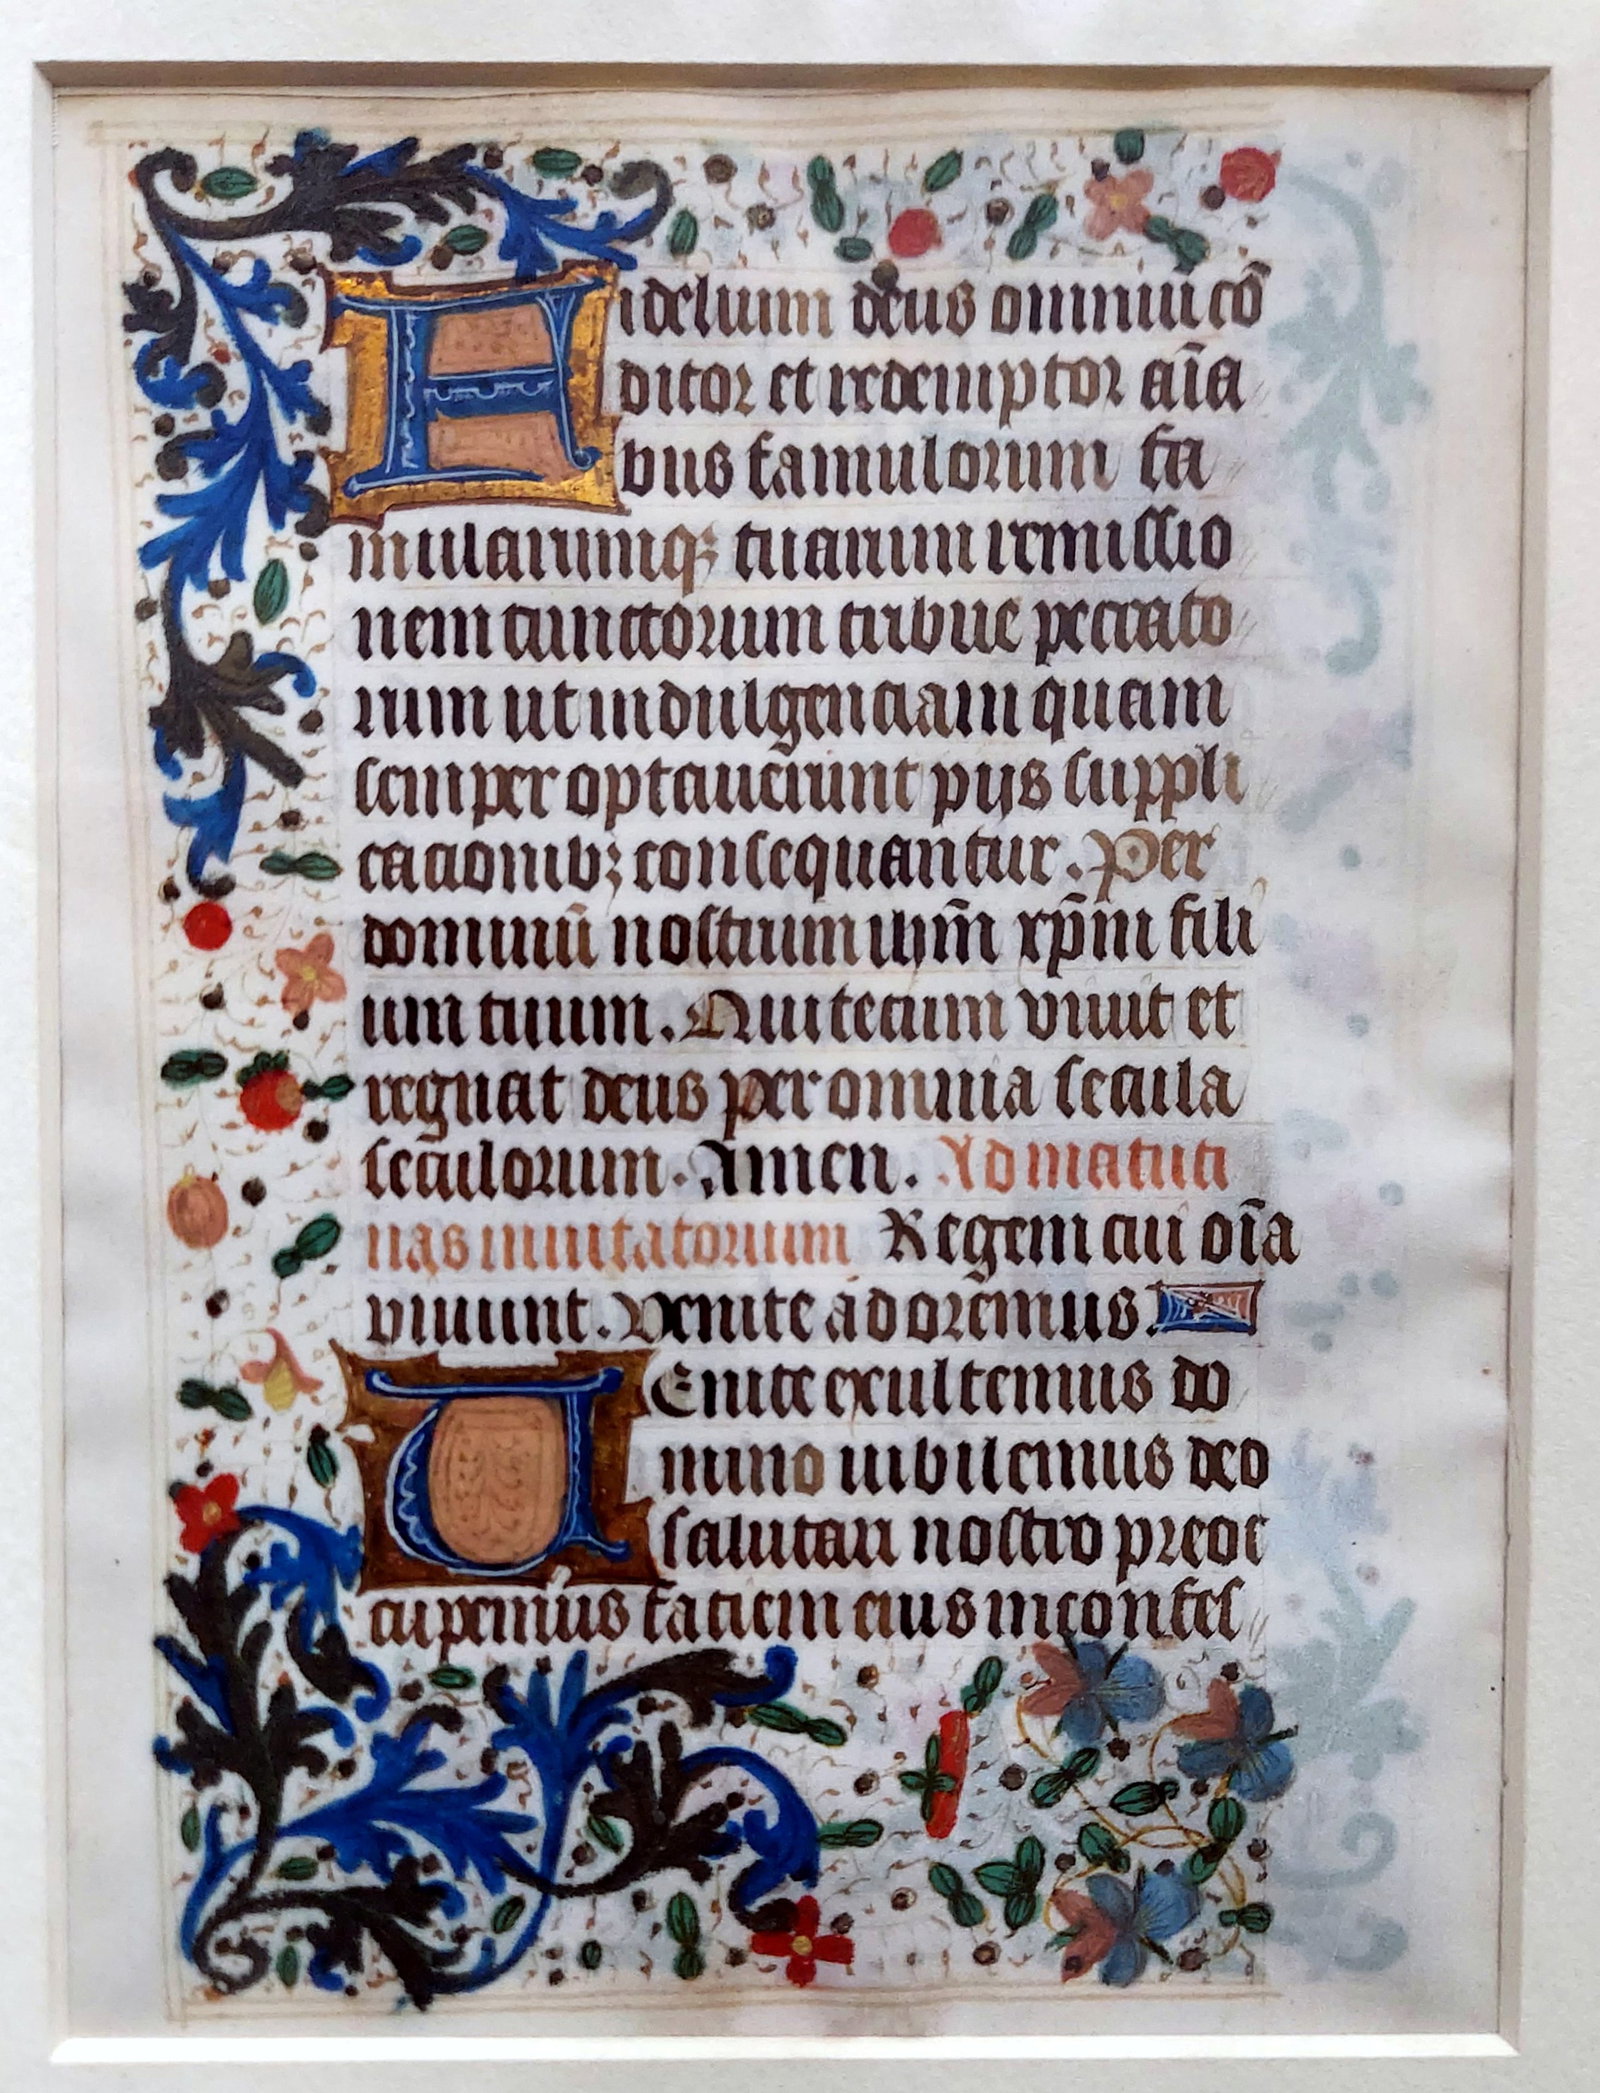 Fidelium deus omniū cō
ditor et redemptor aīa
bus famulorum fa
mularumqꝫ tuarum remissio
nem cunctorum tribue peccato
rum ut indulgenciam quam
semper optauerunt pijs suppli
cacionibꝫ consequantur. Per
dominū nostrum ihm̄ xp̄m fili
um tuum. Qui tecum viuit et
regnat deus per omnia secula
seculorum. Amen. Ad matuti
nas inuitatorium Regem cui oīa
viuunt. Venite adoremus.
VEnite exultemus do
mino iubilemus deo
salutari nostro preoc
cupemus faciem eius in confes